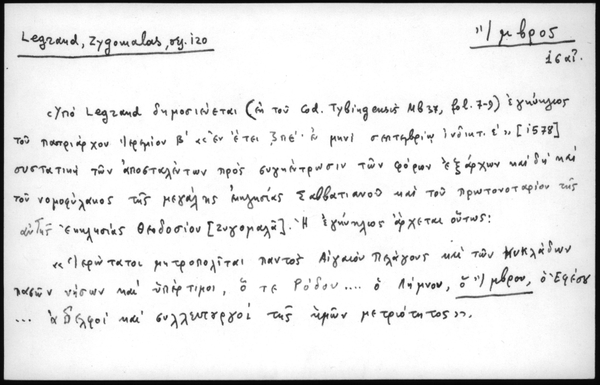 Legrand, Zygomalas, σιγ. 120
Ἴμβρος
16 αἰ.
«Ὑπὸ Legrand δημοσιεύεται (ἐκ τοῦ Cod. Tybingensis Mb 37, fol. 7-9) ἐγκύκλιος
τοῦ πατριάρχου Ἱερεμίου Β' «ἐν ἔτει ζπε' ἐν μηνὶ σεπτεμβρίῳ ἰνδικτ. ε'» [1578]
συστατικὴ τῶν ἀποσταλέντων πρὸς συγκέντρωσιν τῶν φόρων ἐξάρχων καὶ δὴ καὶ
τοῦ νομοφύλακος τῆς μεγάλης ἐκκλησίας Σαββατιανοῦ καὶ τοῦ πρωτονοταρίου τῆς
αὐτῆς ἐκκλησίας Θεοδοσίου [Ζυγομαλᾶ]. Ἡ ἐγκύκλιος ἄρχεται οὕτως:
«Ἱερώτατοι μητροπολῖται παντὸς Αἰγαίου Πελάγους καὶ τῶν Κυκλάδων
πασῶν νήσων καὶ ὑπέρτιμοι, ὅ τε Ῥόδου .... ὁ Λήμνου, ὁ Ἴμβρου, ὁ Ἐφέσου
... ἀδελφοὶ καὶ συλλειτουργοὶ τῆς ἡμῶν μετριότητος».